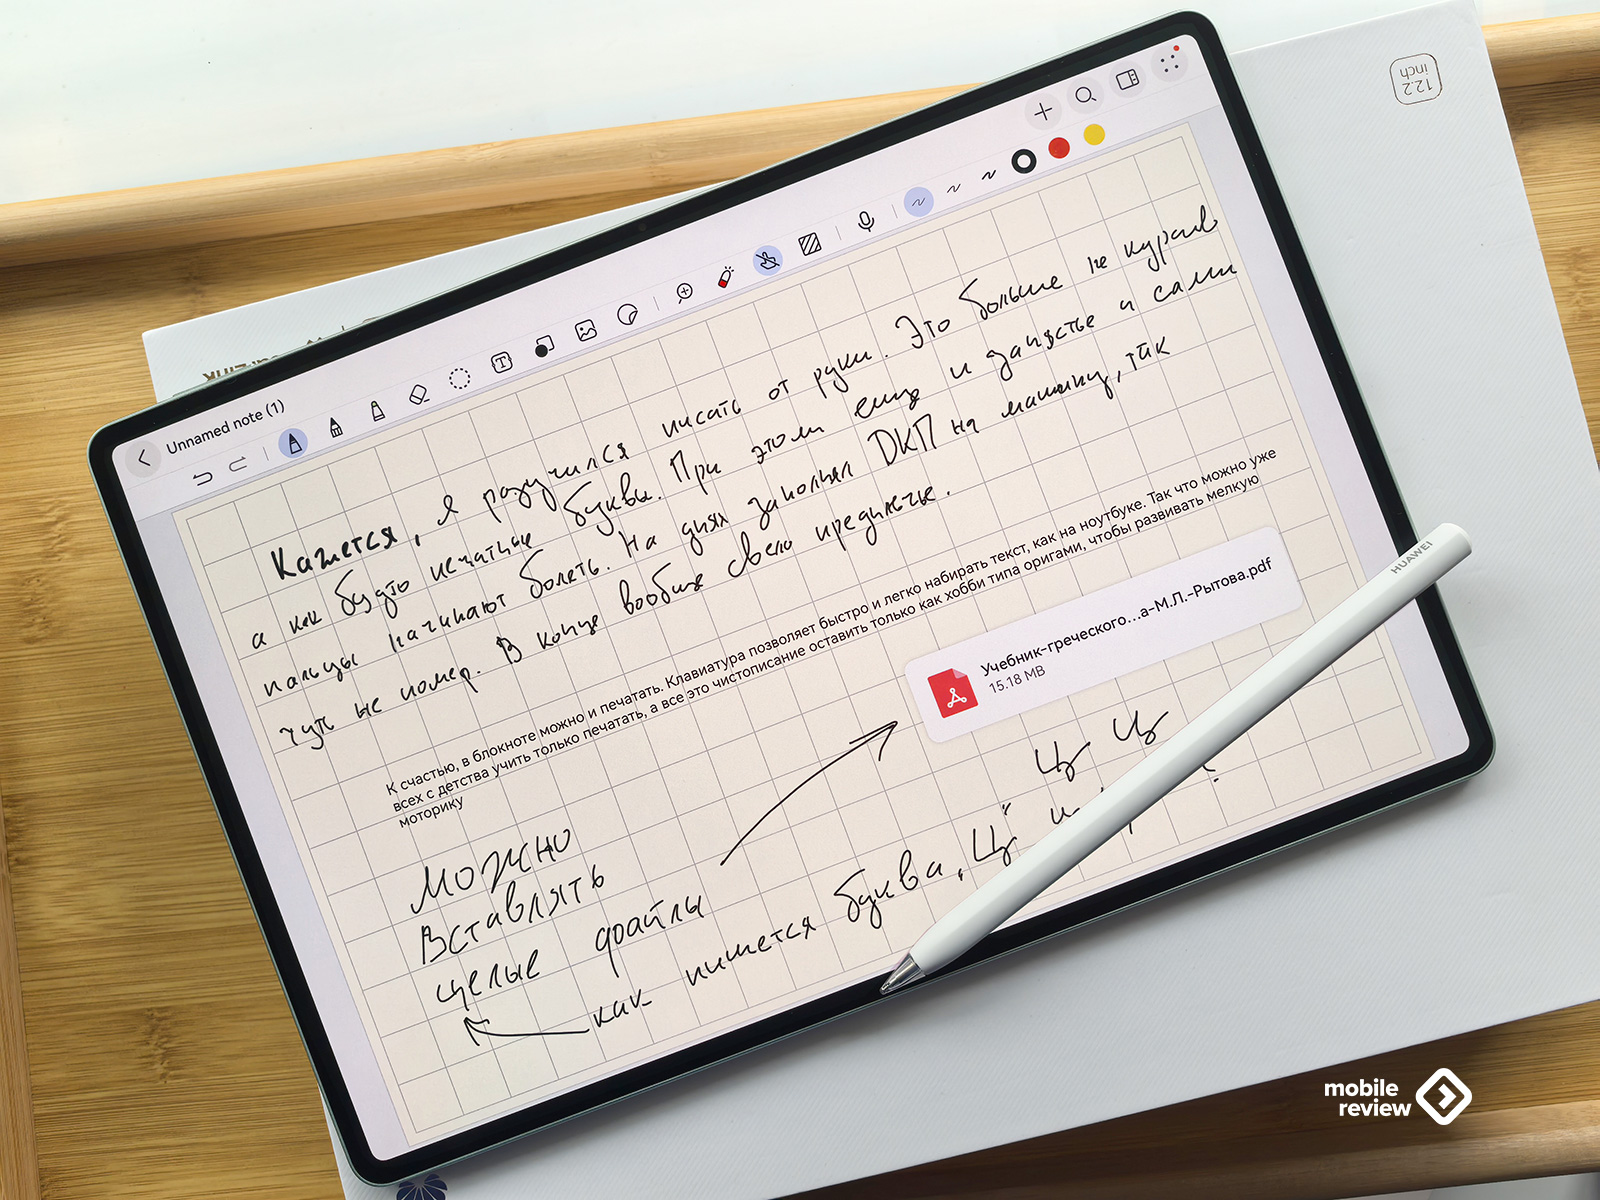 12.2
inch
Unnamed note (1)
Кажется, я разучился писать от руки. Это больше не курсив
а как будто печатные буквы. При этом еще и запястье и сами
пальцы начинают болеть. На днях заполнял ДКП на машину, так
чуть не помер. В конце вообще свело предплечье.
К счастью, в блокноте можно и печатать. Клавиатура позволяет быстро и легко набирать текст, как на ноутбуке. Так что можно уже
всех с детства учить только печатать, а все это чистописание оставить только как хобби типа оригами, чтобы развивать мелкую
моторику
Учебник-греческого...а-М.Л.-Рытова.pdf
15.18 MB
Можно
Вставлять
целые файлы
Ц Ц
как пишется буква „Ц"
HUAWEI
mobile
review